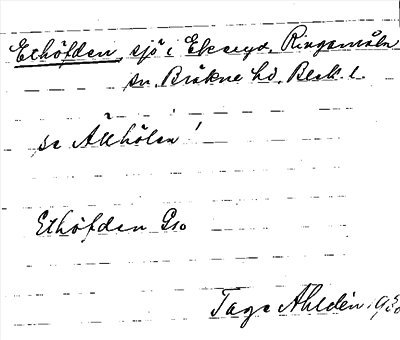 Elhöfden, sjö i Ekeryd, Ringamåla
sn, Bräkne hd, Blek. l.
se Ällhölen
Elhöfden Gs.
Tage Ahldén 1930